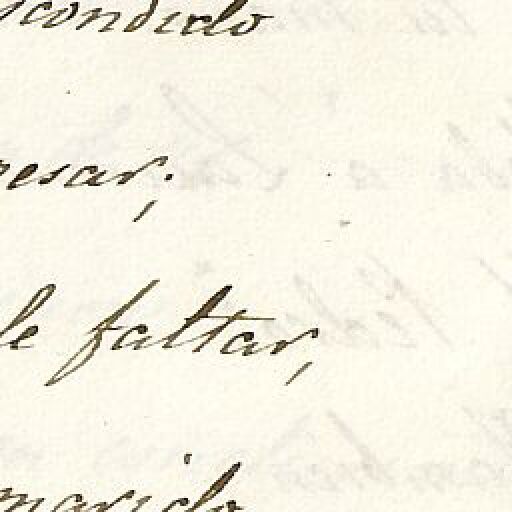 scondido
resar;
le faltar,
marido